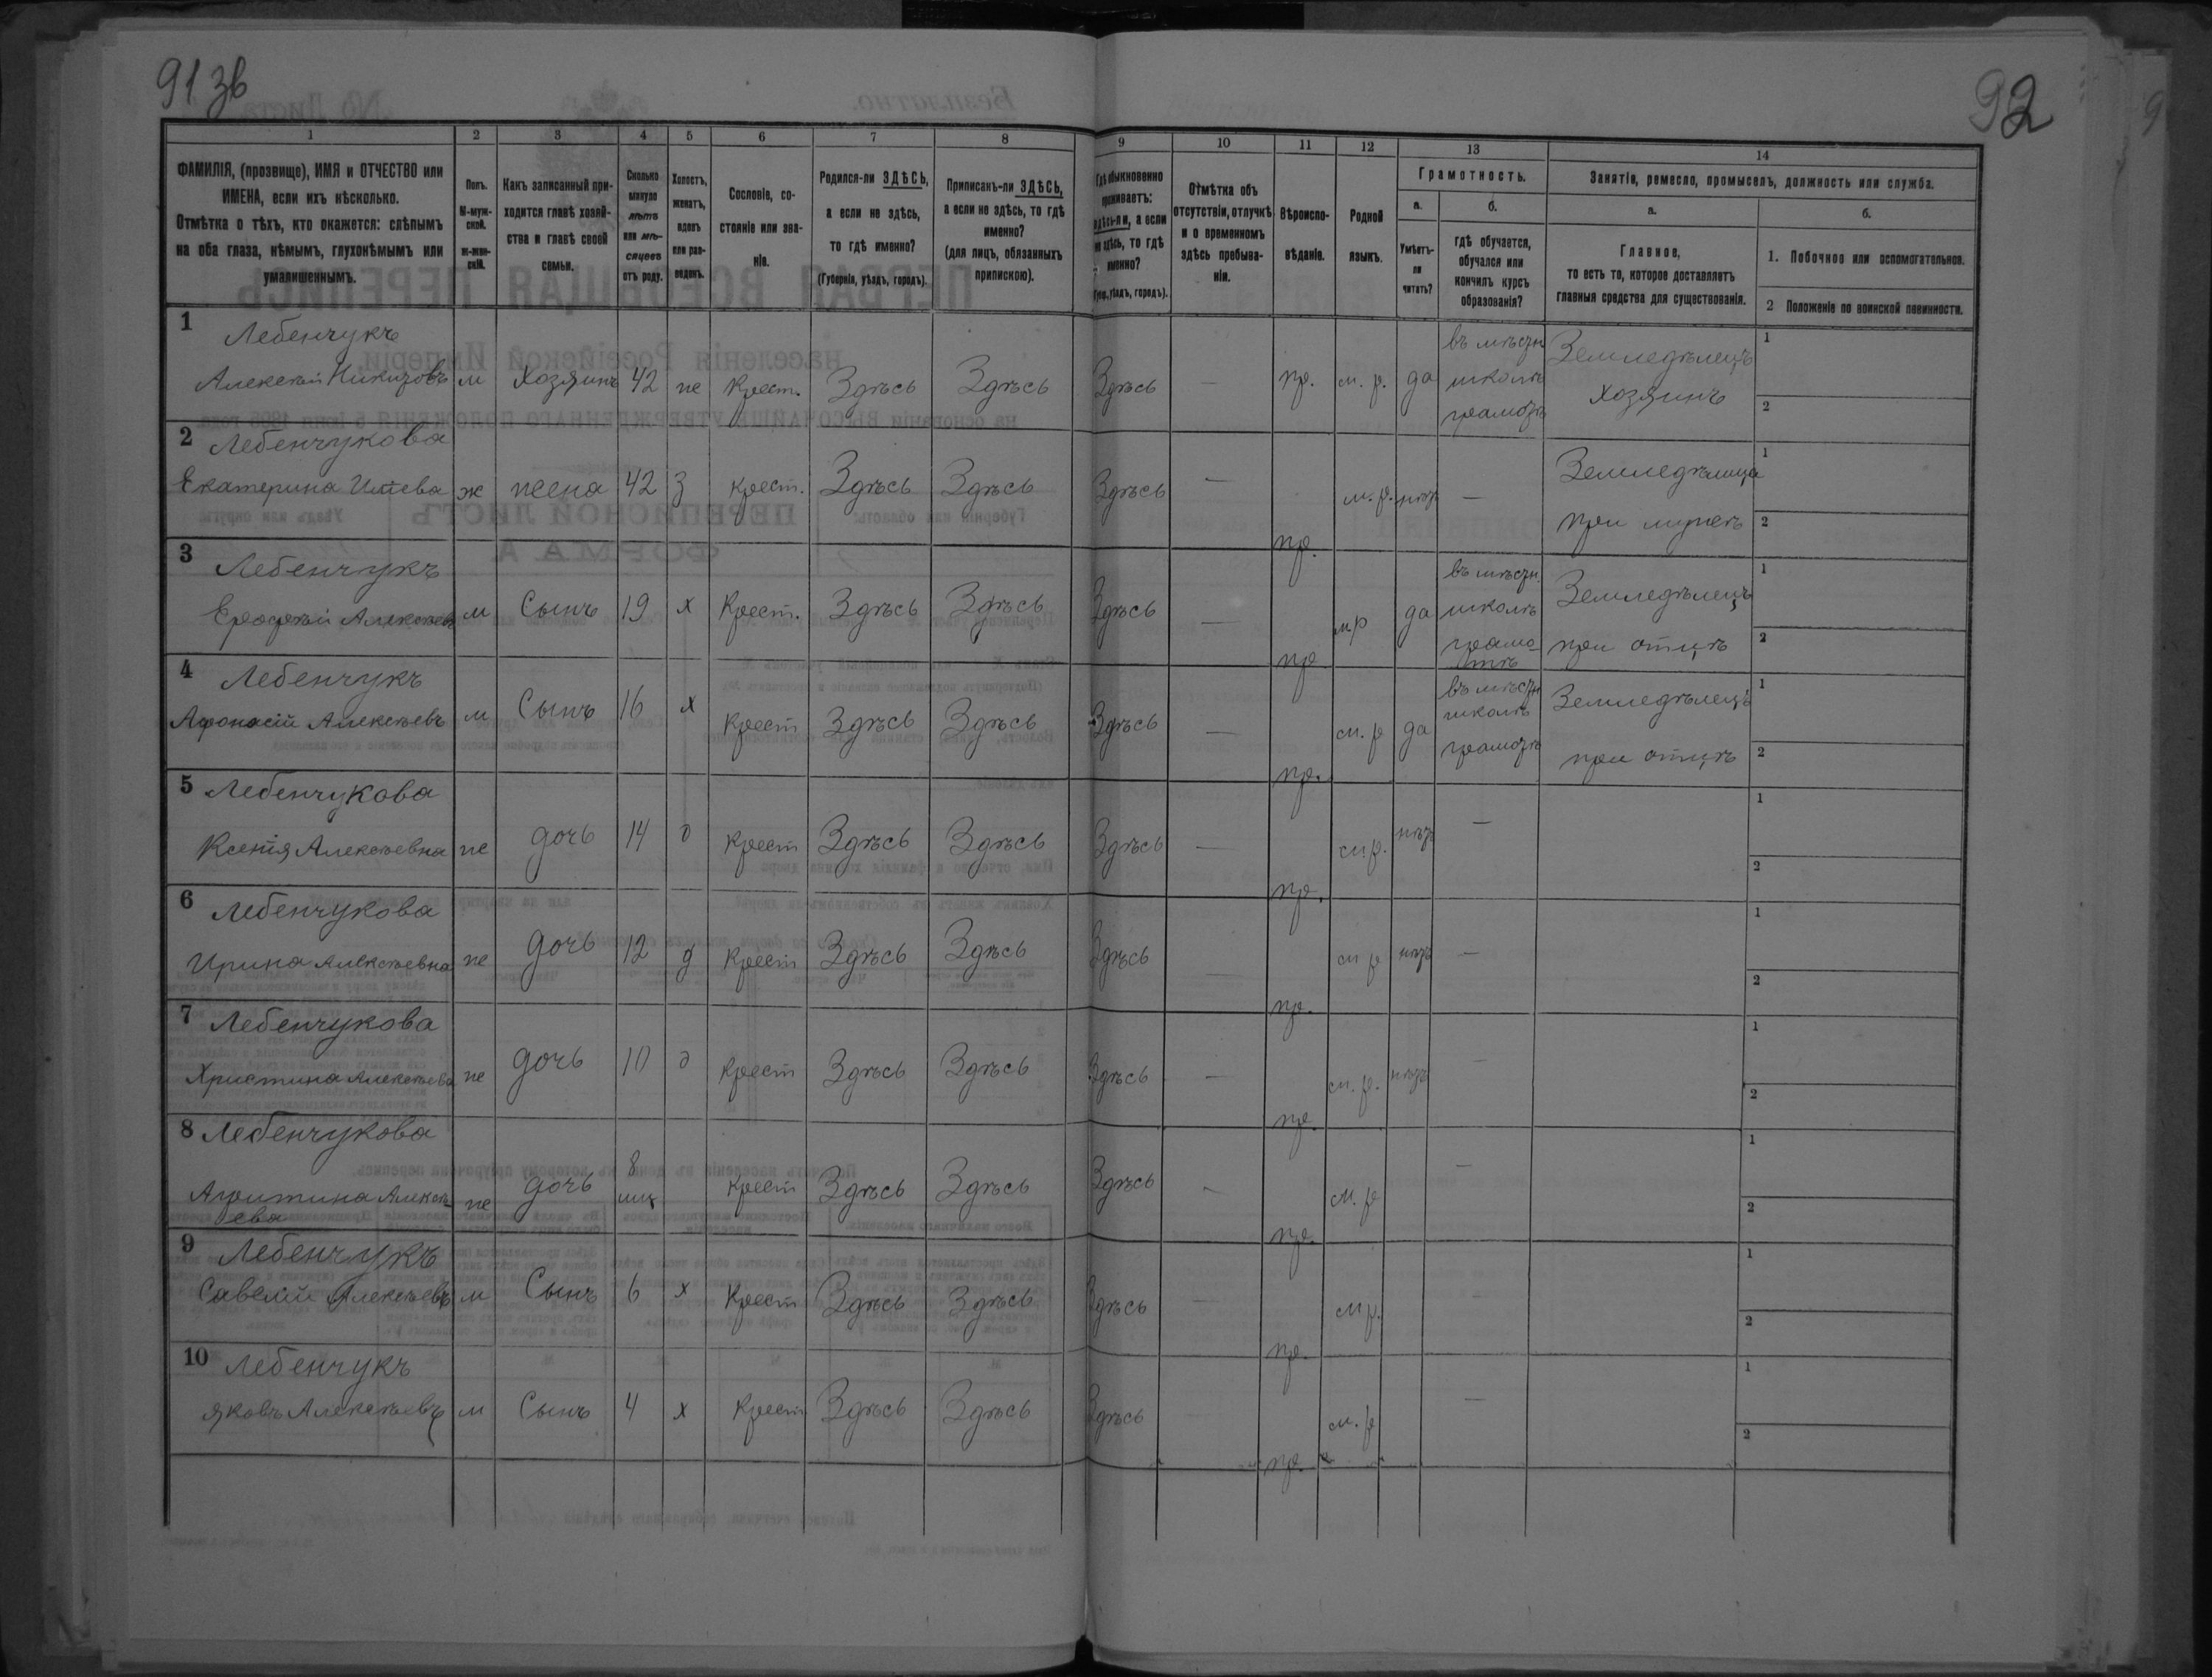 91 зв
92
1 2 3 4 5 6 7 8 9 10 11 12 13 14
ФАМИЛІЯ, (прозвище), ИМЯ и ОТЧЕСТВО или
ИМЕНА, если ихъ нѣсколько.
Отмѣтка о тѣхъ, кто окажется: слѣпымъ
на оба глаза, нѣмымъ, глухонѣмымъ или
умалишеннымъ.
Полъ.
М-муж-
ской.
ж-жен-
скій.
Какъ записанный при-
ходится главѣ хозяй-
ства и главѣ своей
семьи.
Сколько
минуло
лѣтъ
или мѣ-
сяцевъ
отъ роду.
Холостъ,
женатъ,
вдовъ
или раз-
веденъ.
Сословіе, со-
стояніе или зва-
ніе.
Родился-ли ЗДѢСЬ,
а если не здѣсь,
то гдѣ именно?
(Губернія, уѣздъ, городъ).
Приписанъ-ли ЗДѢСЬ,
а если не здѣсь, то гдѣ
именно?
(для лицъ, обязанныхъ
припискою).
Гдѣ обыкновенно
проживаетъ:
здѣсь-ли, а если
не здѣсь, то гдѣ
именно?
(Губер., уѣздъ, городъ).
Отмѣтка объ
отсутствіи, отлучкѣ
и о временномъ
здѣсь пребыва-
ніи.
Вѣроиспо-
вѣданіе.
Родной
языкъ.
Грамотность.
а.
Умѣетъ-
ли
читать?
б.
гдѣ обучается,
обучался или
кончилъ курсъ
образованія?
Занятіе, ремесло, промыселъ, должность или служба.
а.
Главное,
то есть то, которое доставляетъ
главныя средства для существованія.
б.
1. Побочное или вспомогательное.
2 Положеніе по воинской повинности.
1 Лебенчукъ въ мѣстн. Земледѣлецъ 1
Алексѣй Никитовъ м Хозяинъ 42 же Крест. Здѣсь Здѣсь Здѣсь — пр. м. р. да школѣ хозяинъ
грамотѣ 2
2 Лебенчукова Земледѣлица 1
Екатерина ж жена 42 з Крест. Здѣсь Здѣсь Здѣсь — пр. м. р. нѣтъ — при мужѣ 2
3 Лебенчукъ въ мѣстн. Земледѣлецъ 1
Ерофѣй Алексѣевъ м Сынъ 19 х Крест. Здѣсь Здѣсь Здѣсь — пр. м р да школѣ
грамо- при отцѣ 2
тѣ
4 Лебенчукъ въ мѣстн. Земледѣлецъ 1
Афонасій Алексѣевъ м Сынъ 16 х Крест Здѣсь Здѣсь Здѣсь — пр. м. р да школѣ
грамотѣ при отцѣ 2
5 Лебенчукова 1
Ксенія Алексѣевна же дочь 14 д Крест Здѣсь Здѣсь Здѣсь — пр. м р. нѣтъ — 2
6 Лебенчукова 1
Ирина Алексѣевна же дочь 12 д Крест Здѣсь Здѣсь Здѣсь — пр. м р нѣтъ — 2
7 Лебенчукова 1
Христина Алексѣева же дочь 10 д Крест Здѣсь Здѣсь Здѣсь — пр. м. р. нѣтъ — 2
8 Лебенчукова 8 1
Алексѣ- же дочь мц Крест Здѣсь Здѣсь Здѣсь — пр. м. р — 2
ева
9 Лебенчукъ 1
Савелій Алексѣевъ м Сынъ 6 х Крест Здѣсь Здѣсь Здѣсь — пр. м р. — 2
10 Лебенчукъ 1
Яковъ Алексѣевъ м Сынъ 4 х Крест Здѣсь Здѣсь Здѣсь — пр. м. р — 2